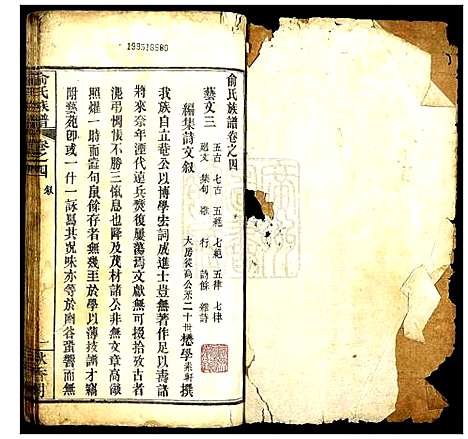 199518580
俞氏族譜卷之四
藝文三
五古 七古 五絕 七絕 五律 七律
迴文 集句 雜行 詩餘 雜詩
編集詩文叙
大房裳高公派二十世懋學東軒撰
我族自文明公以博學宏詞成進士豈無著作足以壽諸
將來奈年湮代遠兵燹復屢蕩焉文獻無可掇拾攷古者
渑弔惆悵不勝三慨息也降及茂材諸公非無文章高敵
照燿一時而盈句鼠餘存者無幾至於學以薄技謏才竊
附藝苑卽或一什一詠爲其况味亦等於幽谷蛩響而無
俞氏族譜
卷之四
叙
一